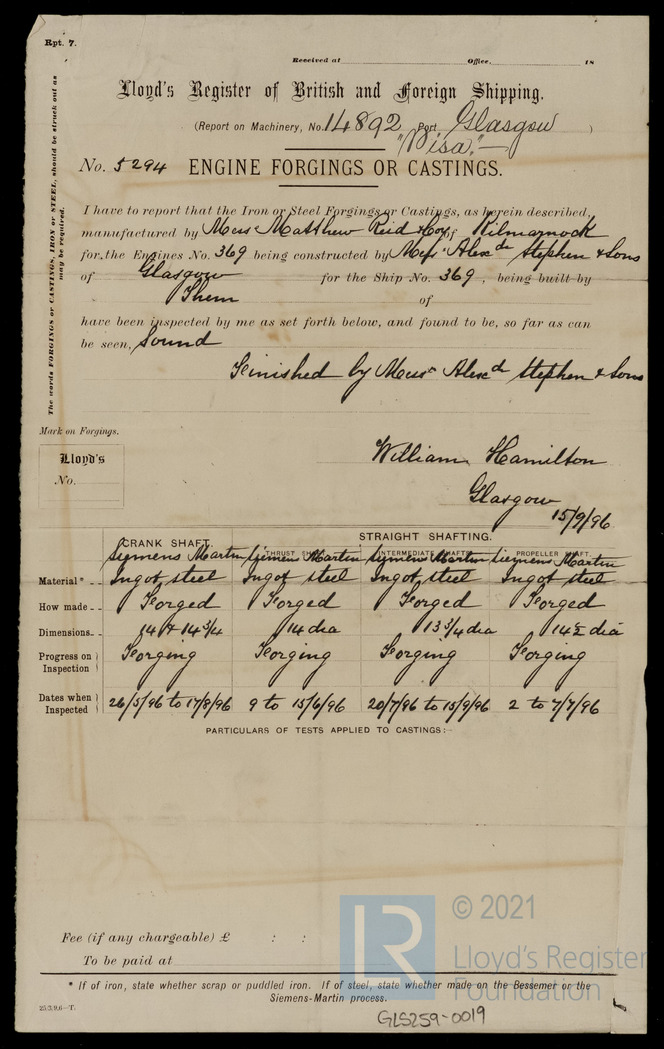 Rpt. 7.
Received at Office, 18
Lloyd's Register of British and Foreign Shipping.
(Report on Machinery, No. 14892 Port Glasgow )
"Pisa."
No. 5294 ENGINE FORGINGS OR CASTINGS.
The words FORGINGS or CASTINGS, IRON or STEEL, should be struck out as may be required.
I have to report that the Iron or Steel Forgings or Castings, as herein described,
manufactured by Mess Matthew Reid & Coy, of Kilmarnock
for the Engines No. 369 being constructed by Mess Alexd Stephen & Sons
of Glasgow for the Ship No. 369, being built by
Them of
have been inspected by me as set forth below, and found to be, so far as can
be seen, Sound
Finished by Messrs Alexd Stephen & Sons
Mark on Forgings.
Lloyd's
No.
William Hamilton
Glasgow
15/9/96
CRANK SHAFT. STRAIGHT SHAFTING.
THRUST SHAFT. INTERMEDIATE SHAFTS. PROPELLER SHAFT.
Siemens Martin Siemens Martin Siemens Martin Siemens Martin
Material* Ingot steel Ingot steel Ingot steel Ingot steel
How made Forged Forged Forged Forged
Dimensions 14 & 14 3/4 14 dia 13 3/4 dia 14 1/2 dia
Progress on Inspection Forging Forging Forging Forging
Dates when Inspected 26/5/96 to 17/8/96 9 to 15/6/96 20/7/96 to 15/9/96 2 to 7/7/96
PARTICULARS OF TESTS APPLIED TO CASTINGS:—
Fee (if any chargeable) £ : :
To be paid at
* If of iron, state whether scrap or puddled iron. If of steel, state whether made on the Bessemer or the
Siemens-Martin process.
25/3/96—T.
GLS259-0019
LR
© 2021
Lloyd's Register
Foundation